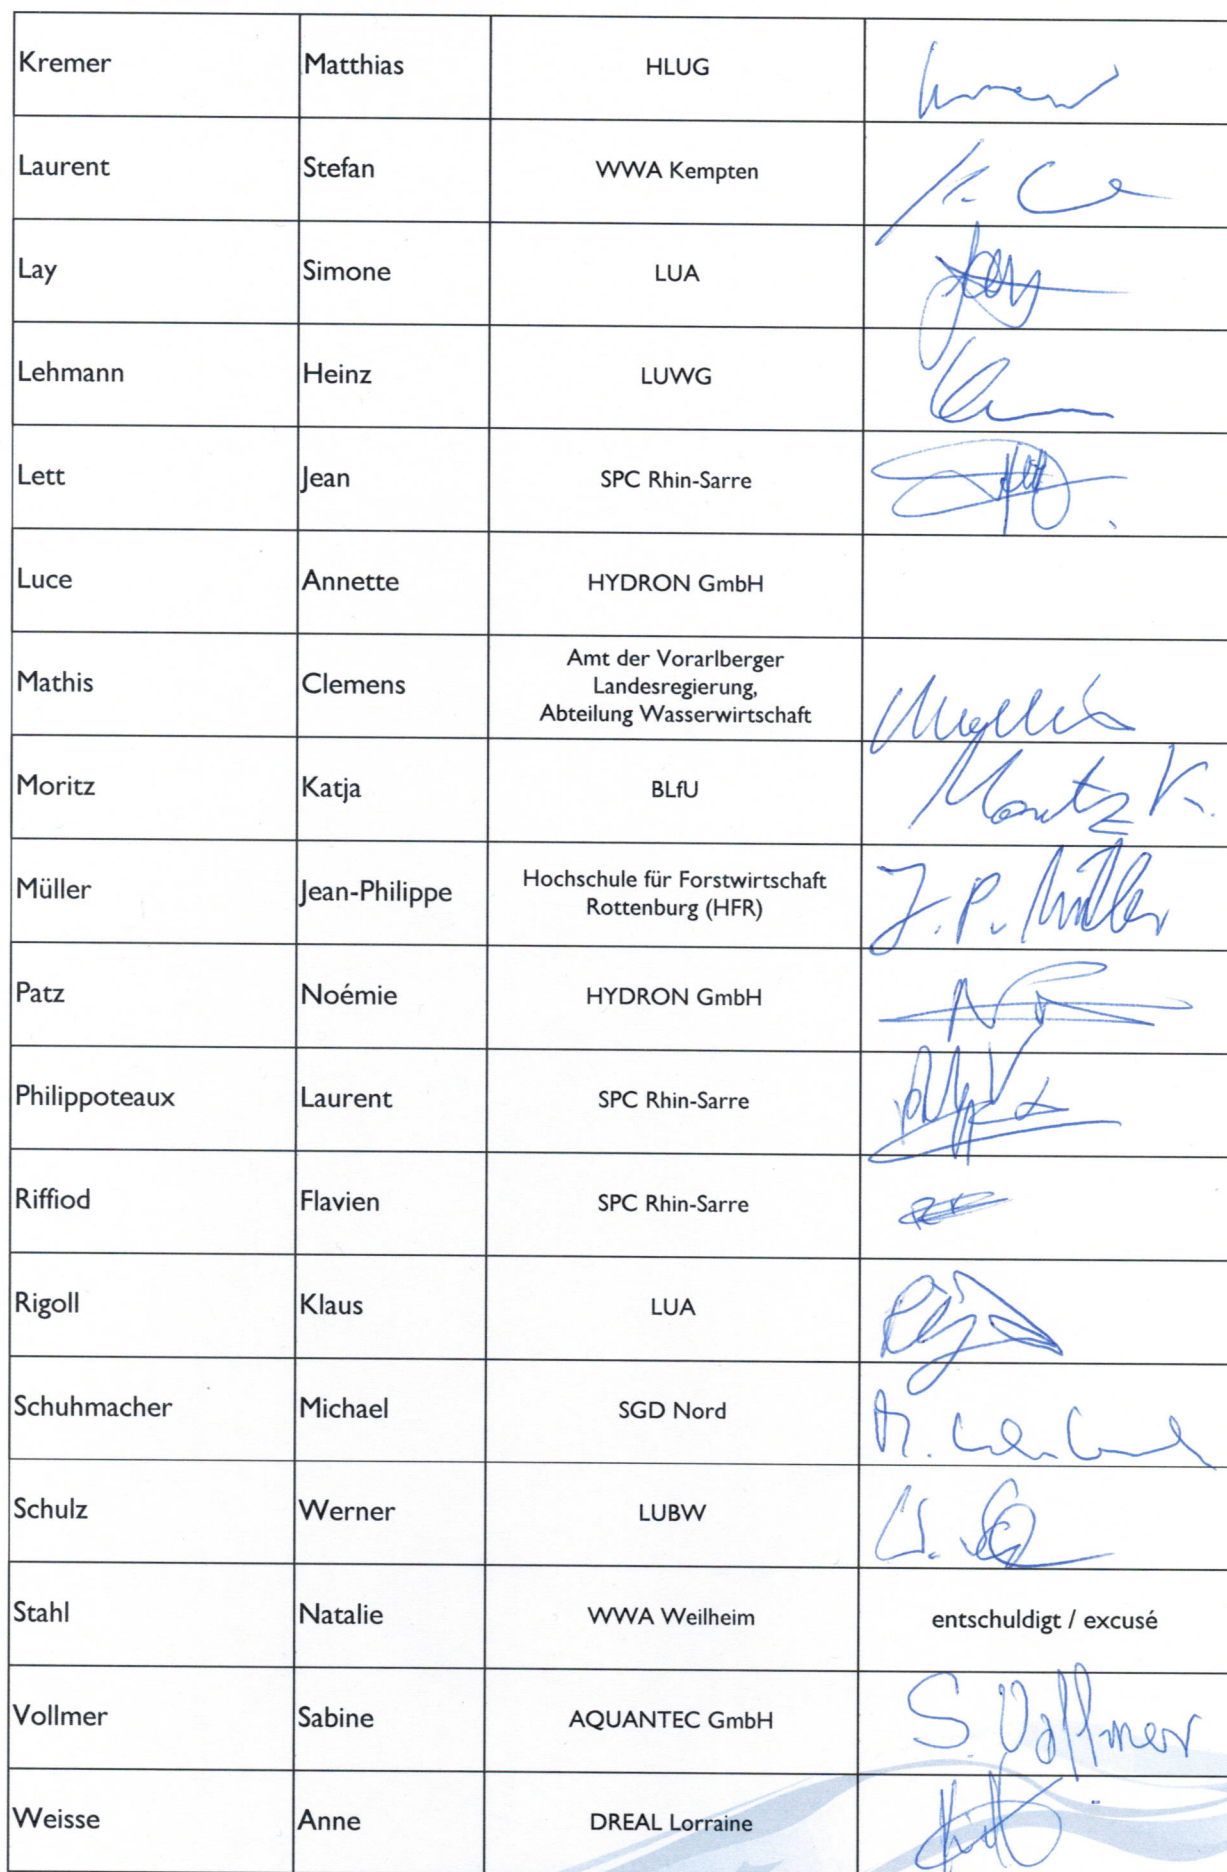 Kremer Matthias HLUG
Laurent Stefan WWA Kempten
Lay Simone LUA
Lehmann Heinz LUWG
Lett Jean SPC Rhin-Sarre
Luce Annette HYDRON GmbH
Mathis Clemens Amt der Vorarlberger
Landesregierung,
Abteilung Wasserwirtschaft
Moritz Katja BLfU Moritz K.
Müller Jean-Philippe Hochschule für Forstwirtschaft J.P. Müller
Rottenburg (HFR)
Patz Noémie HYDRON GmbH
Philippoteaux Laurent SPC Rhin-Sarre
Riffiod Flavien SPC Rhin-Sarre
Rigoll Klaus LUA
Schuhmacher Michael SGD Nord
Schulz Werner LUBW
Stahl Natalie WWA Weilheim entschuldigt / excusé
Vollmer Sabine AQUANTEC GmbH S. Vollmer
Weisse Anne DREAL Lorraine